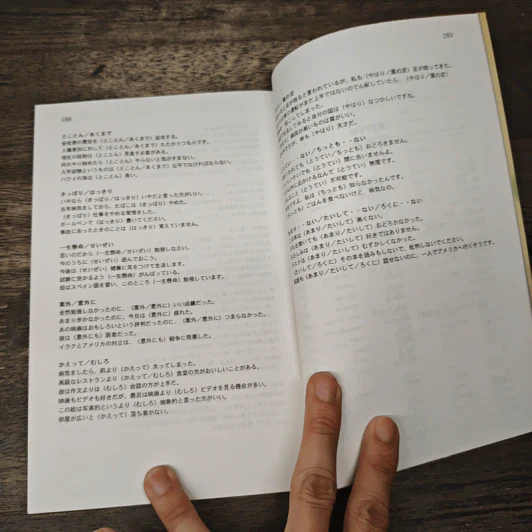 288
とことん／あくまで
会社側の責任を（とことん／あくまで）追求する。
人種差別に対して（とことん／あくまで）たたかうつもりです。
現在の段階は（とことん）見直す必要がある。
何かやり始めたら（とことん）やらないと気がすまない。
入学試験というものは（あくまで）公平でなければならない。
ハワイの海は（とことん）青い。
さっぱり／はっきり
いやなら（さっぱり／はっきり）いやだと言った方がいい。
去年病気をしてから、たばこは（さっぱり）やめた。
（さっぱり）仕事をやめる覚悟をした。
ボールペンで（はっきり）書いてください。
事故にあったときのことは（はっきり）覚えていません。
一生懸命／せいぜい
若いのだから（一生懸命／せいぜい）勉強しなさい。
今のうちに（せいぜい）遊んでおこう。
今後は（せいぜい）健康に気をつけて生活します。
試験に受かるよう（一生懸命）がんばっている。
母はスペイン語を習い、このところ（一生懸命）勉強しています。
案外／意外に
全然勉強しなかったのに、（案外／意外に）いい成績だった。
あまり歩かなかったのに、今日は（意外に）疲れた。
あの映画はおもしろいという評判だったのに、（案外／意外に）つまらなかった。
彼は（意外にも）医者だった。
イラクとアメリカの対立は、（意外にも）戦争に発展した。
かえって／むしろ
病気をしたら、前より（かえって）太ってしまった。
高級なレストランより（かえって／むしろ）食堂の方がおいしいことがある。
彼は作文よりは（むしろ）会話の方が上手だ。
映画もビデオも好きだが、最近は映画より（むしろ）ビデオを見る機会が多い。
この絵は写実的というより（むしろ）抽象的と言った方がいい。
部屋が広いと（かえって）落ち着かない。
289
案の定
が振ると言われているが、私も（やはり／案の定）足が振ってきた。
運転がまだ上手ではないので心配していたら、（やはり／案の定）
してしまった。
してみると自分の国は（やはり）なつかしいですね。
値段が高いものは質がいい。
だが、弟も（やはり）天才だ。
・・ない／ちっとも・・ない
ても（とうてい／ちっとも）おどろきません。
いでも（とうてい）間に合いませんよ。
に出かけるなんて（とうてい）無理です。
こと（とうてい）不可能です。
は、私は（ちっとも）知らなかったんです。
（ちっとも）ごはんを食べないけど、病気なの。
・・ない／たいして・・ない／ろくに・・ない
は（あまり／たいして）高くない。
を聞いても（あまり／たいして）おどろかなかった。
しみは（あまり／たいして）好きではありません。
は（あまり／たいして）むずかしくなかった。
（たいして／ろくに）その本を読みもしないで、批判しないでください。
（あまり／たいして／ろくに）話せないのに、一人でアメリカへ行くそうです。